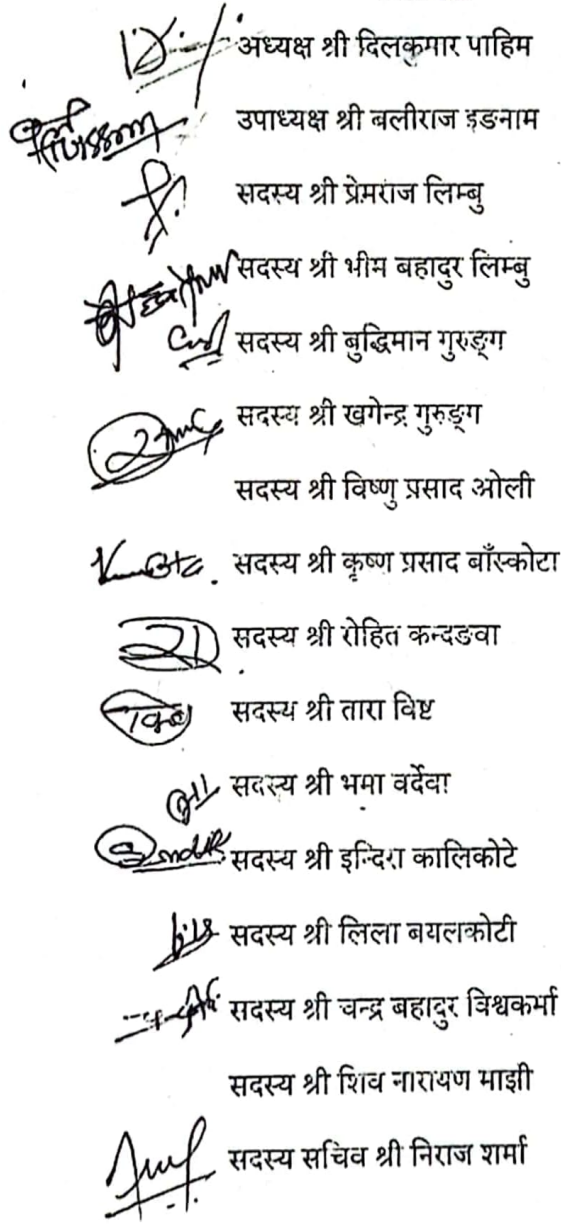 अध्यक्ष श्री दिलकुमार पाहिम
उपाध्यक्ष श्री बलीराज इङनाम
सदस्य श्री प्रेमराज लिम्बु
सदस्य श्री भीम बहादुर लिम्बु
सदस्य श्री बुद्धिमान गुरुङ्ग
सदस्य श्री खगेन्द्र गुरुङ्ग
सदस्य श्री विष्णु प्रसाद ओली
सदस्य श्री कृष्ण प्रसाद बाँस्कोटा
सदस्य श्री रोहित कन्दङवा
सदस्य श्री तारा विष्ट
सदस्य श्री भमा वर्देवा
सदस्य श्री इन्दिरा कालिकोटे
सदस्य श्री लिला बयलकोटी
सदस्य श्री चन्द्र बहादुर विश्वकर्मा
सदस्य श्री शिव नारायण माझी
सदस्य सचिव श्री निराज शर्मा